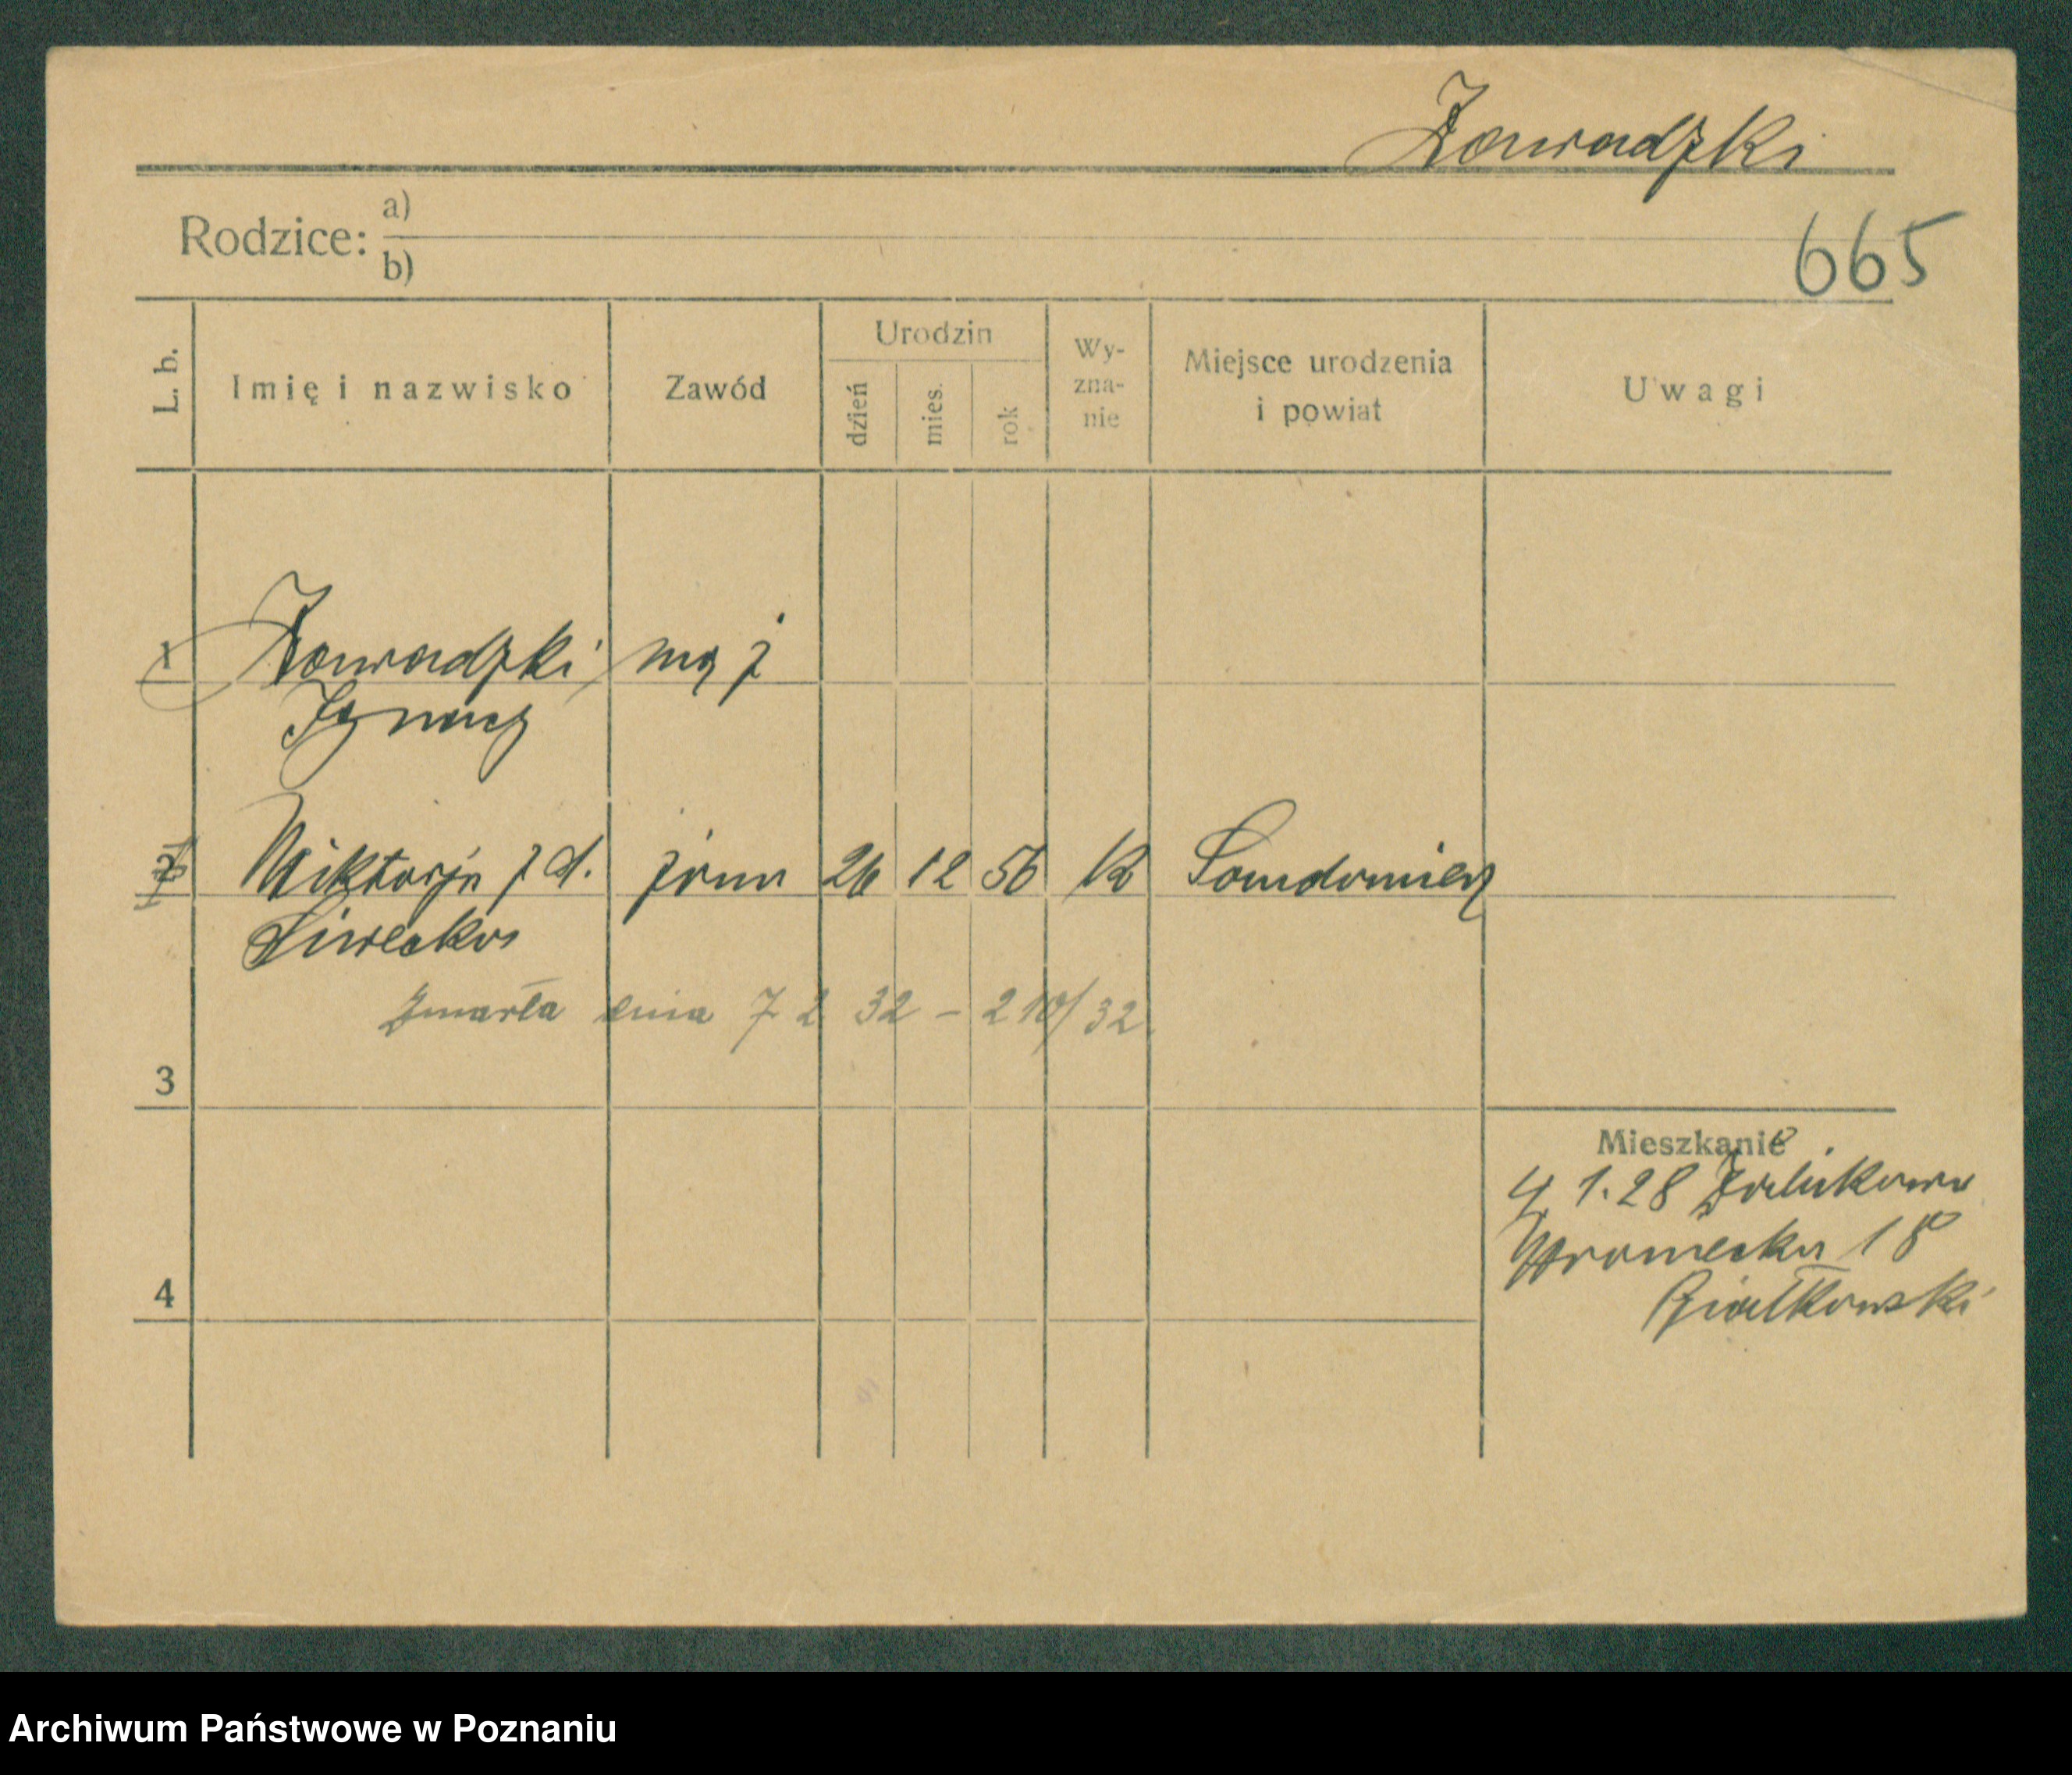 Zawadzki
Rodzice: a)
b)
665
L. b.
Imię i nazwisko
Zawód
Urodzin
dzień
mies.
rok
Wy-
zna-
nie
Miejsce urodzenia
i powiat
Uwagi
1 Zawadzki mąż
Ignacy
2 Wiktorja z d. żona 26 12 56 K Sandomierz
Siwecka
Zmarła dnia 7 2 32 – 210/32.
3
Mieszkanie
4 1.28
Wroniecka 18
Białkowski
4
Archiwum Państwowe w Poznaniu